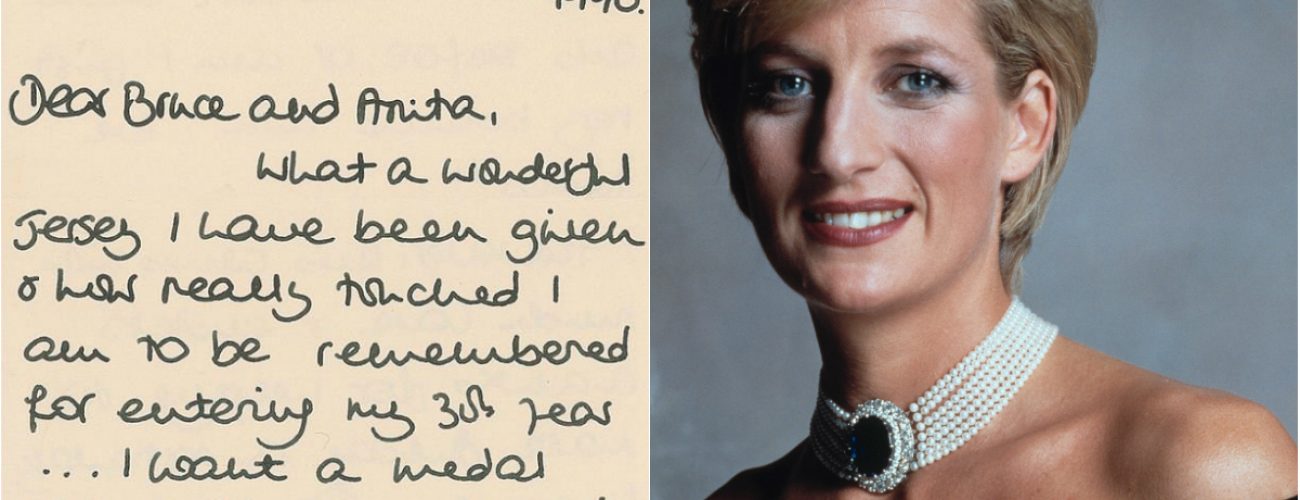 1990.
Dear Bruce and Anita,
What a wonderful
jersey I have been given
& how really touched I
am to be remembered
for entering my 30th year
... I want a medal